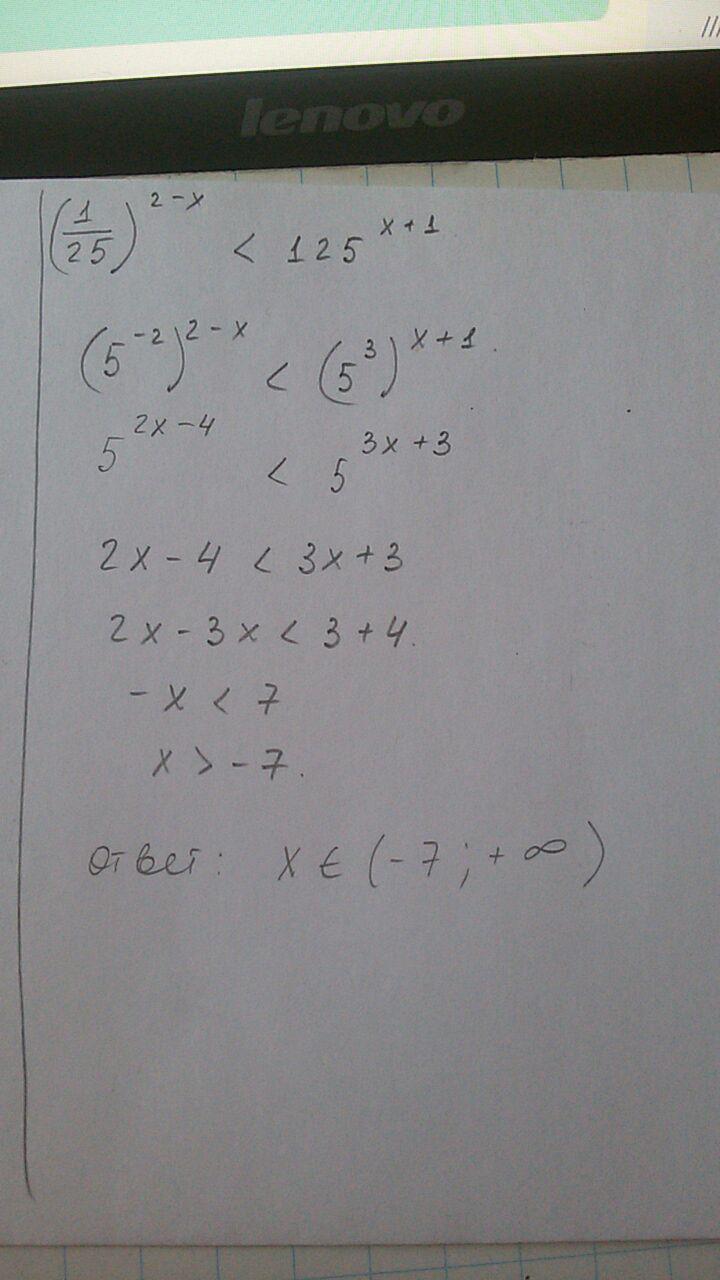 lenovo
(1/25)^(2-x) < 125^(x+1)
(5^(-2))^(2-x) < (5^3)^(x+1)
5^(2x-4) < 5^(3x+3)
2x-4 < 3x+3
2x-3x < 3+4.
-x < 7
x > -7.
ответ: x ∈ (-7; +∞)